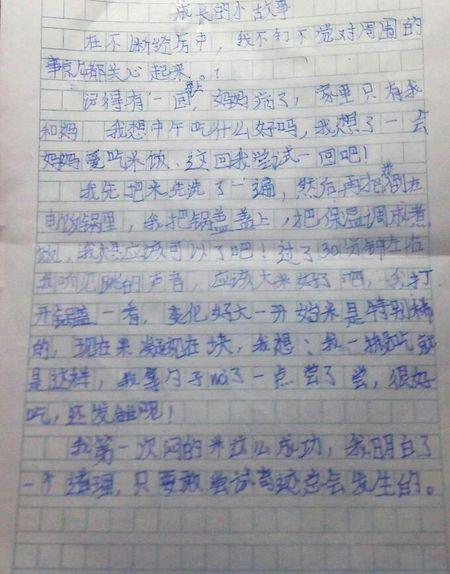 成长的小故事
在不断经历中，我不知不觉对周围的
事点都关心起来。
记得有一回，妈妈病了，家里只有我
和妈 我想中午吃什么好吗，我想了一会
妈妈爱吃米饭、这回我尝试一回吧！
我先把米先洗了一遍，然后再把倒在
电饭锅里，我把锅盖盖上，把保温调成煮
饭，我想应该可以了吧！过了30分钟左右
我听见 的声音，应该大米好了吧，我打
开锅盖一看，变化好大一开始米是特别稀
的，现在果凝现在块，我想：我一 就
是这样，我拿勺子 了一点尝了尝，很好
吃，还发甜呢！
我第一次闷的米这么成功，我明白了
一个道理，只要敢尝试奇迹总会发生的。